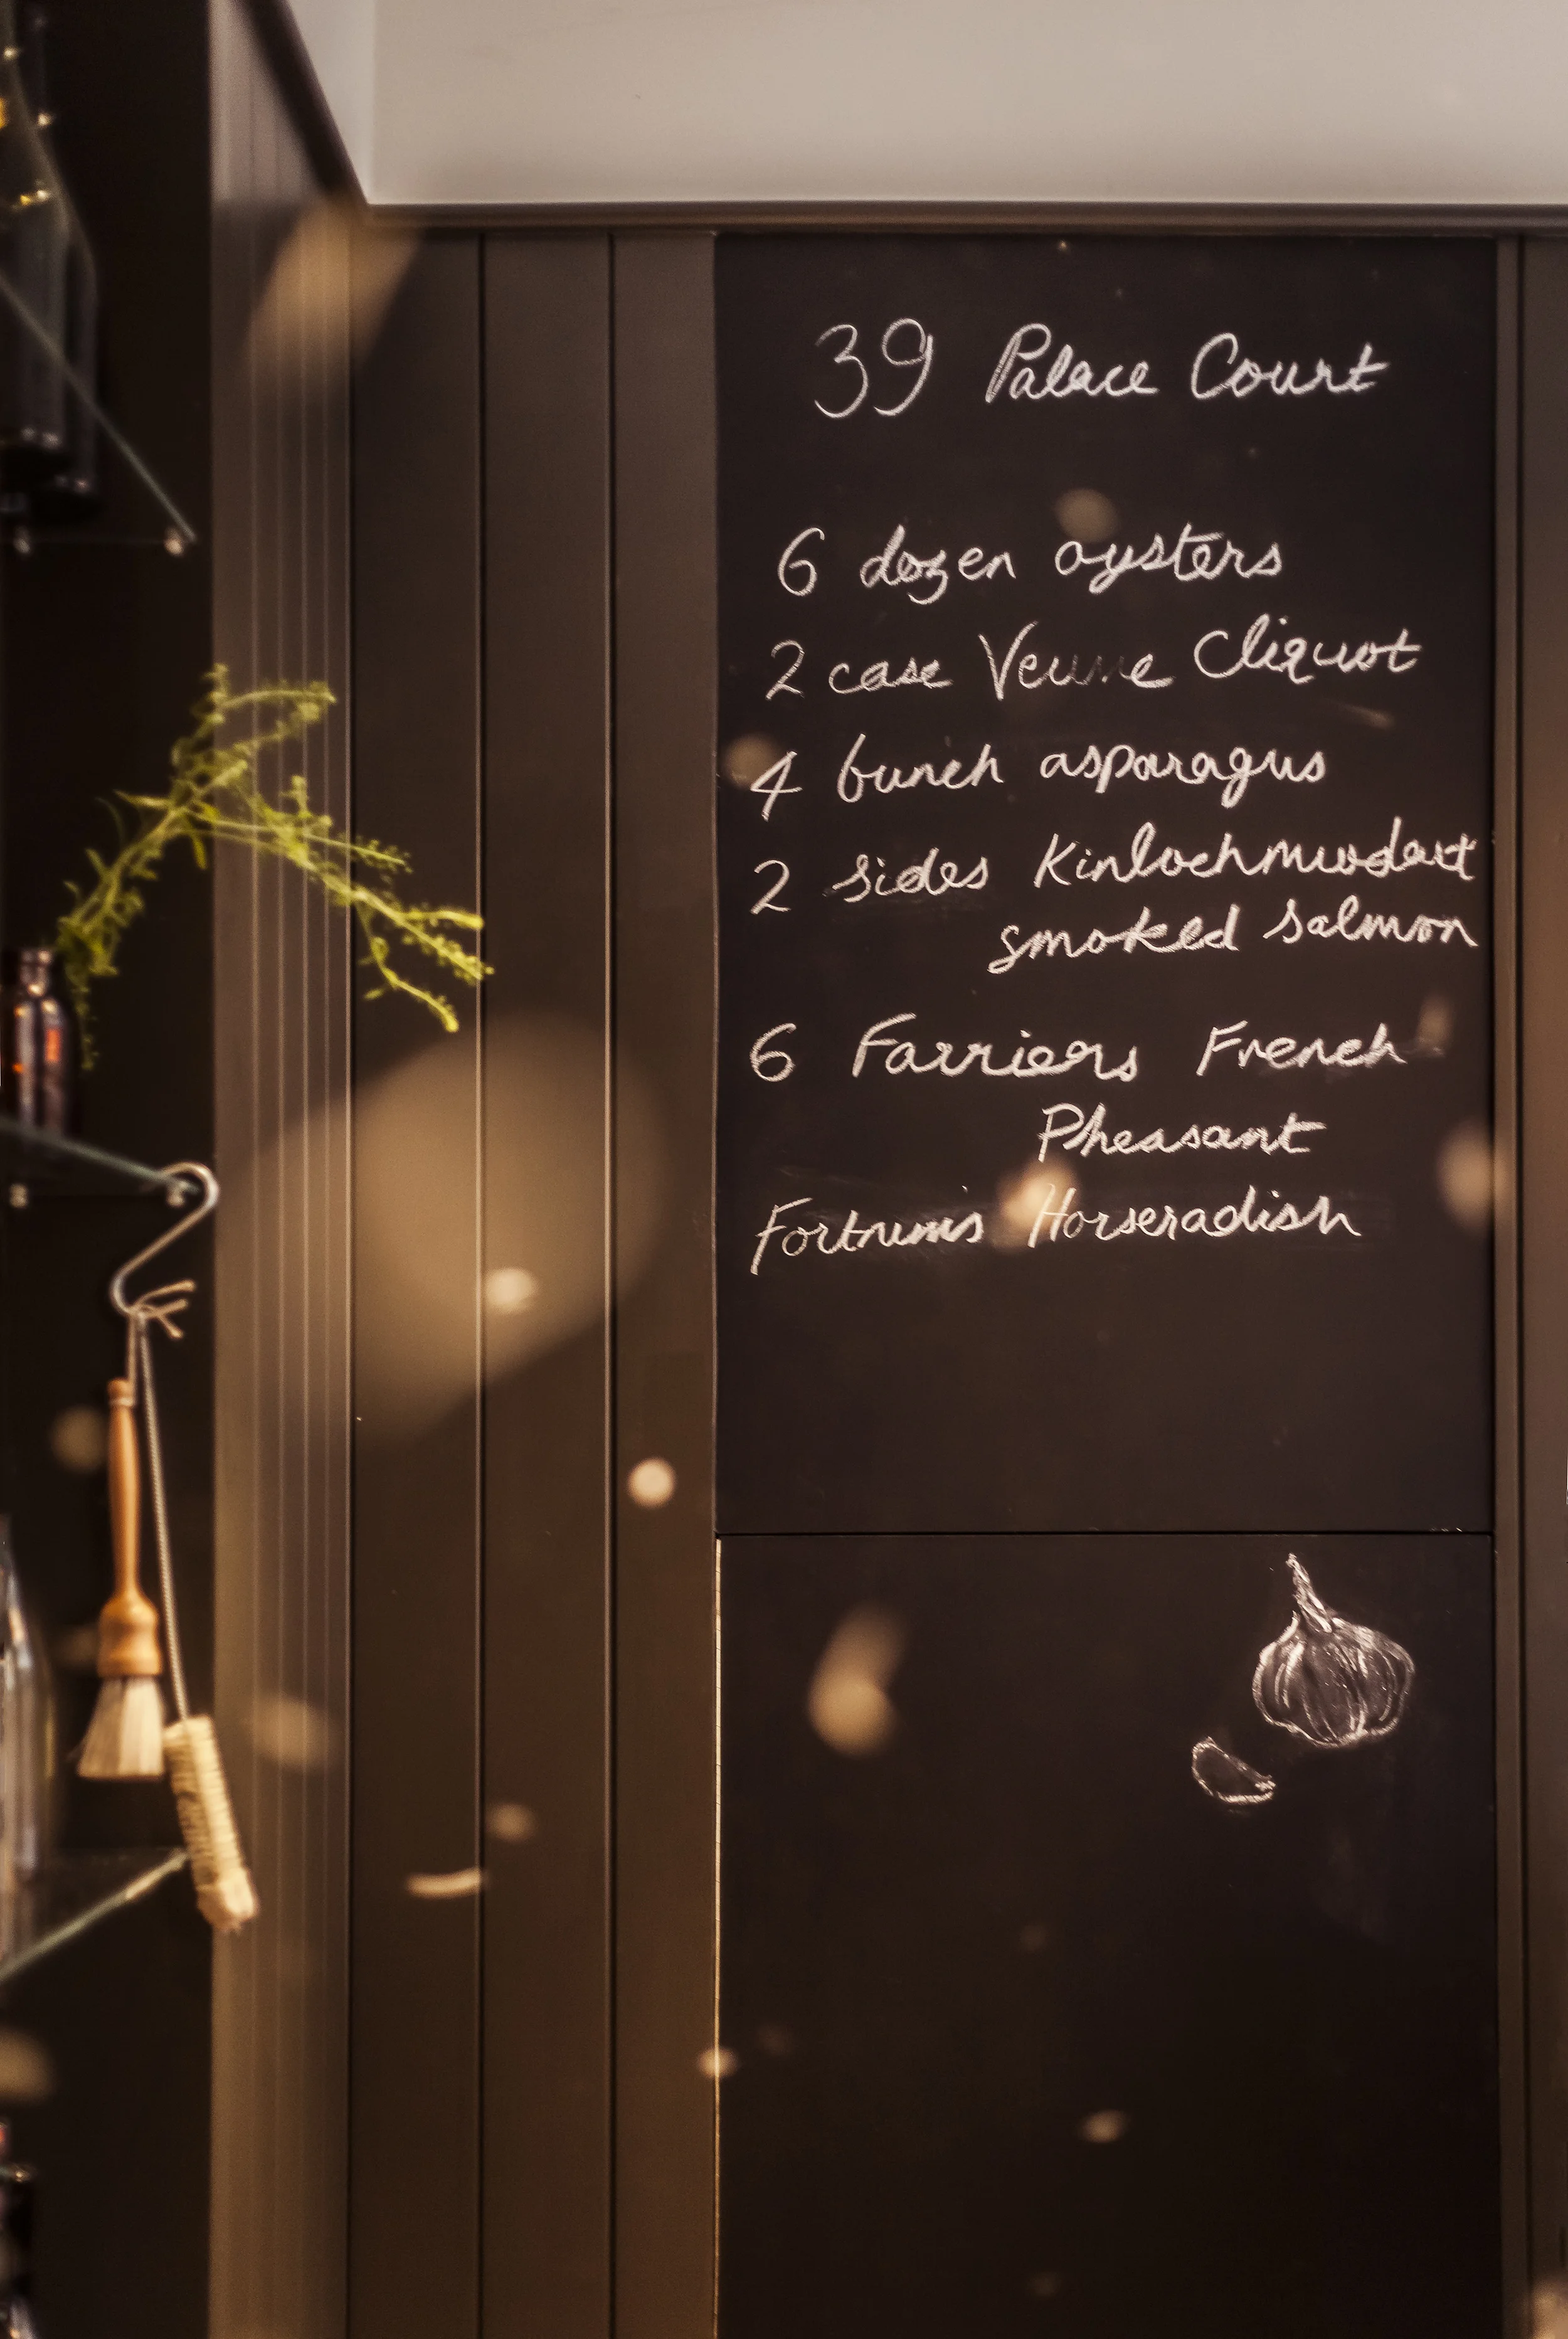 39 Palace Court
6 dozen oysters
2 case Veuve Cliquot
4 bunch asparagus
2 sides Kinlochmuodart
smoked salmon
6 Farriers French
Pheasant
Fortnums Horseradish